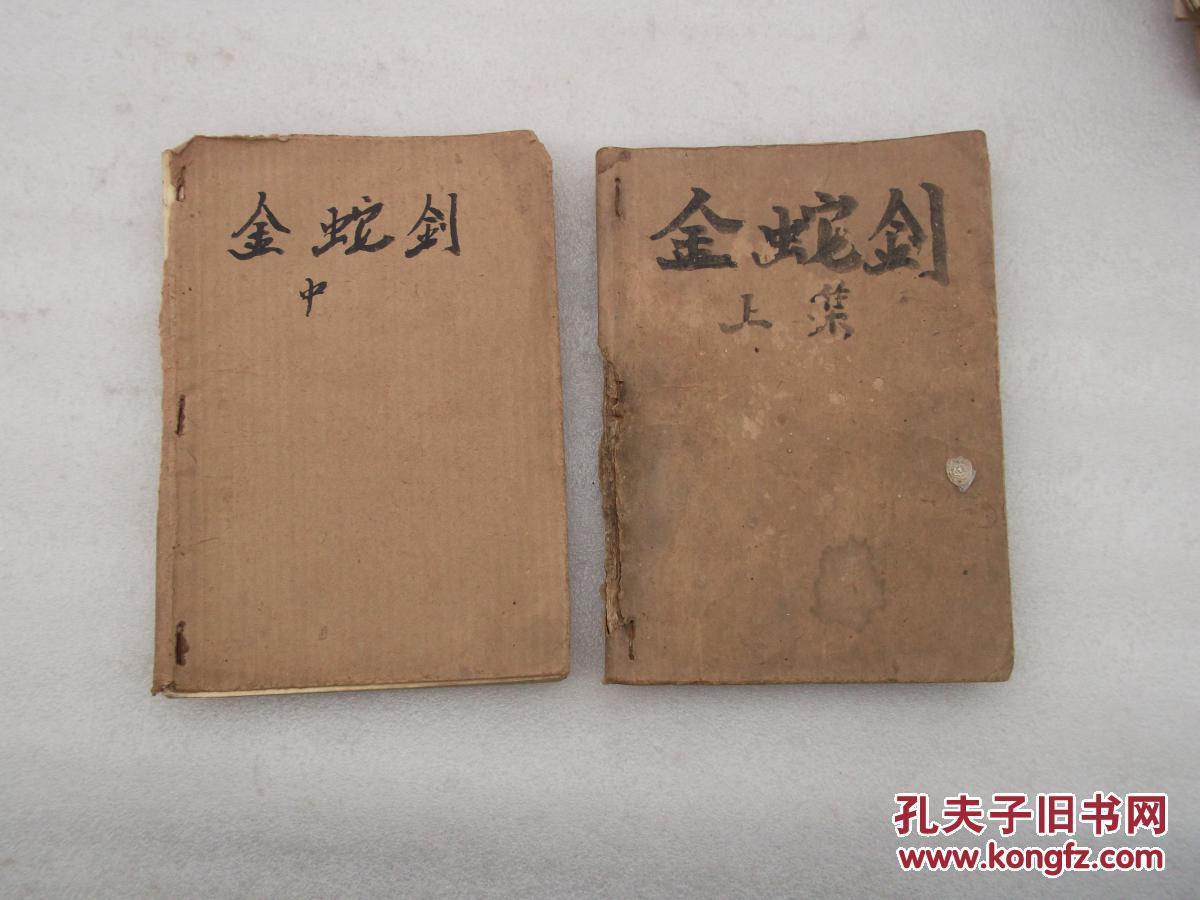 金蛇剑
中
金蛇剑
上集
孔夫子旧书网
www.kongfz.com